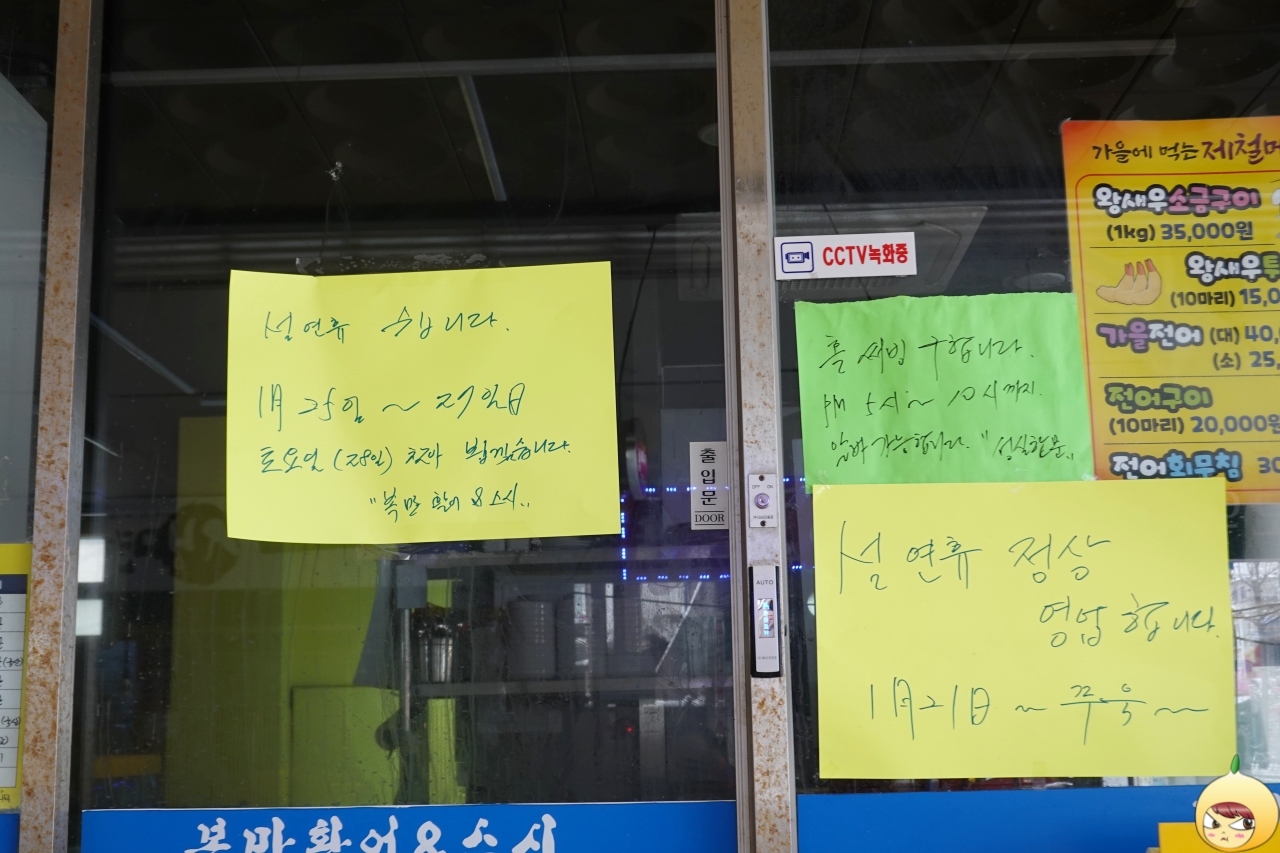 설 연휴 쉽니다.
1月 25일 ~ 27일日
토요일 (28일) 찾아 뵙겠습니다.
"복만 활어 & 소시"
출입문
DOOR
CCTV녹화중
홀 써빙 구합니다.
PM 5시~ 10시까지.
알바 가능합니다. "성실한분"
설 연휴 정상
영업 합니다.
1月 21日 ~ 쭈욱 ~
가을에 먹는 제철메
왕새우소금구이
(1kg) 35,000원
왕새우튀
(10마리) 15,0
가을전어 (대) 40,
(소) 25,
전어구이
(10마리) 20,000원
전어회무침 30
OFF ON
AUTO